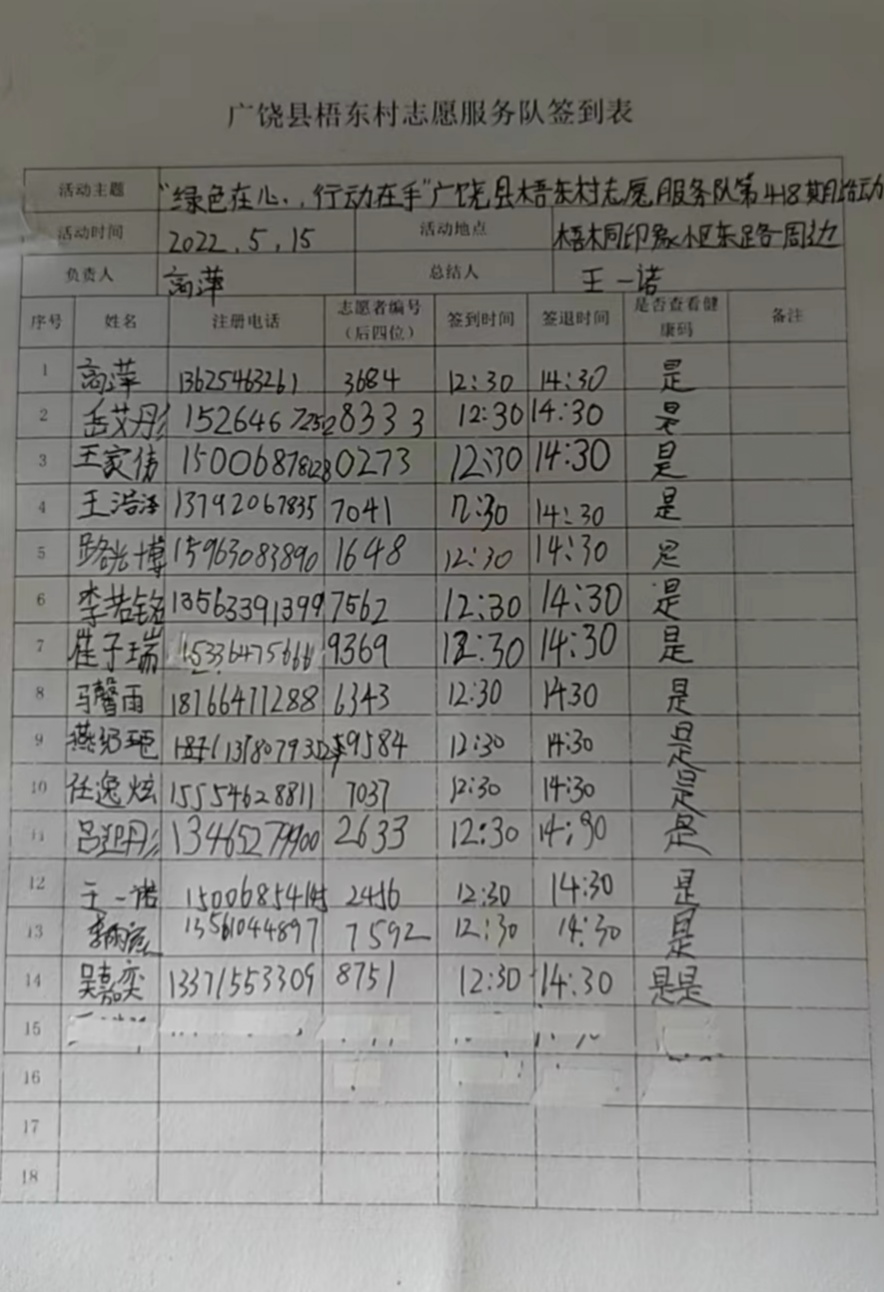 广饶县梧东村志愿服务队签到表
活动主题 “绿色在心，行动在手”广饶县梧东村志愿服务队第418期活动
活动时间 2022.5.15 活动地点 梧桐印象小区东路周边
负责人 高萍 总结人 王一诺
序号 姓名 注册电话 志愿者编号（后四位） 签到时间 签退时间 是否查看健康码 备注
1 高萍 13625463261 3684 12:30 14:30 是
2 岳艾彤 15264672528 8333 12:30 14:30 是
3 王家倩 15006878128 0273 12:30 14:30 是
4 王浩泽 13792067835 7041 12:30 14:30 是
5 路光博 15963083890 1648 12:30 14:30 是
6 李若铭 13563391399 7562 12:30 14:30 是
7 崔子瑞 15336475666 9369 12:30 14:30 是
8 马馨雨 18766471288 6343 12:30 1430 是
9 9584 12:30 14:30 是
10 任逸炫 15554628811 7037 12:30 14:30 是
11 13465279900 2633 12:30 14:30 是
12 王一诺 2456 12:30 14:30 是
13 13561044897 7592 12:30 14:30 是
14 吴嘉奕 13371553309 8751 12:30 14:30 是是
15
16
17
18